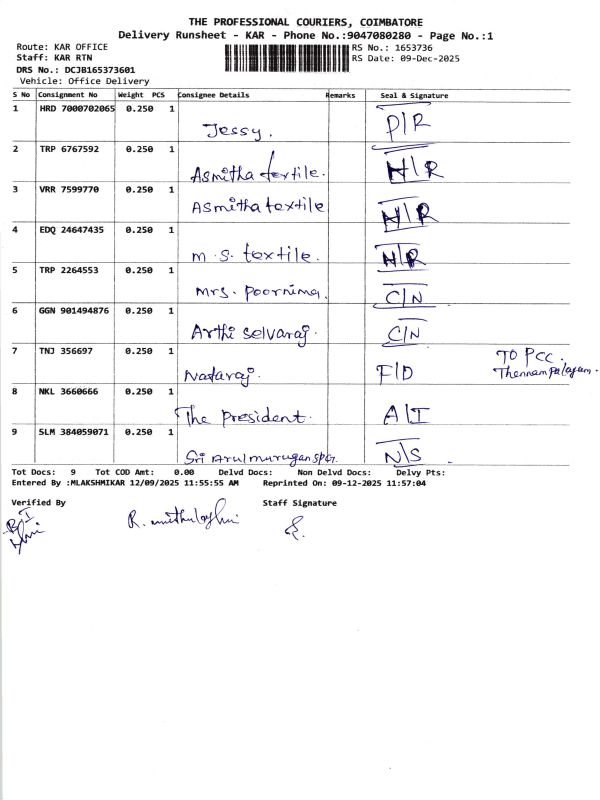 THE PROFESSIONAL COURIERS, COIMBATORE
Delivery Runsheet - KAR - Phone No.:9047080280 - Page No.:1
Route: KAR OFFICE RS No.: 1653736
Staff: KAR RTN RS Date: 09-Dec-2025
DRS No.: DCJB165373601
Vehicle: Office Delivery
S No Consignment No Weight PCS Consignee Details Remarks Seal & Signature
1 HRD 7000702065 0.250 1 Jessy. P/R
2 TRP 6767592 0.250 1 Asmitha textile. N/R
3 VRR 7599770 0.250 1 Asmitha textile N/R
4 EDQ 24647435 0.250 1 m.s. textile. N/R
5 TRP 2264553 0.250 1 Mrs. Poornima. C/N
6 GGN 901494876 0.250 1 Arthi Selvaraj. C/N
7 TNJ 356697 0.250 1 Nataraj. F/D TO PCC.
Thennampalayam.
8 NKL 3660666 0.250 1 The President. A/I
9 SLM 384059071 0.250 1 Sri Arulmurugan N/S
Tot Docs: 9 Tot COD Amt: 0.00 Delvd Docs: Non Delvd Docs: Delvy Pts:
Entered By :MLAKSHMIKAR 12/09/2025 11:55:55 AM Reprinted On: 09-12-2025 11:57:04
Verified By Staff Signature